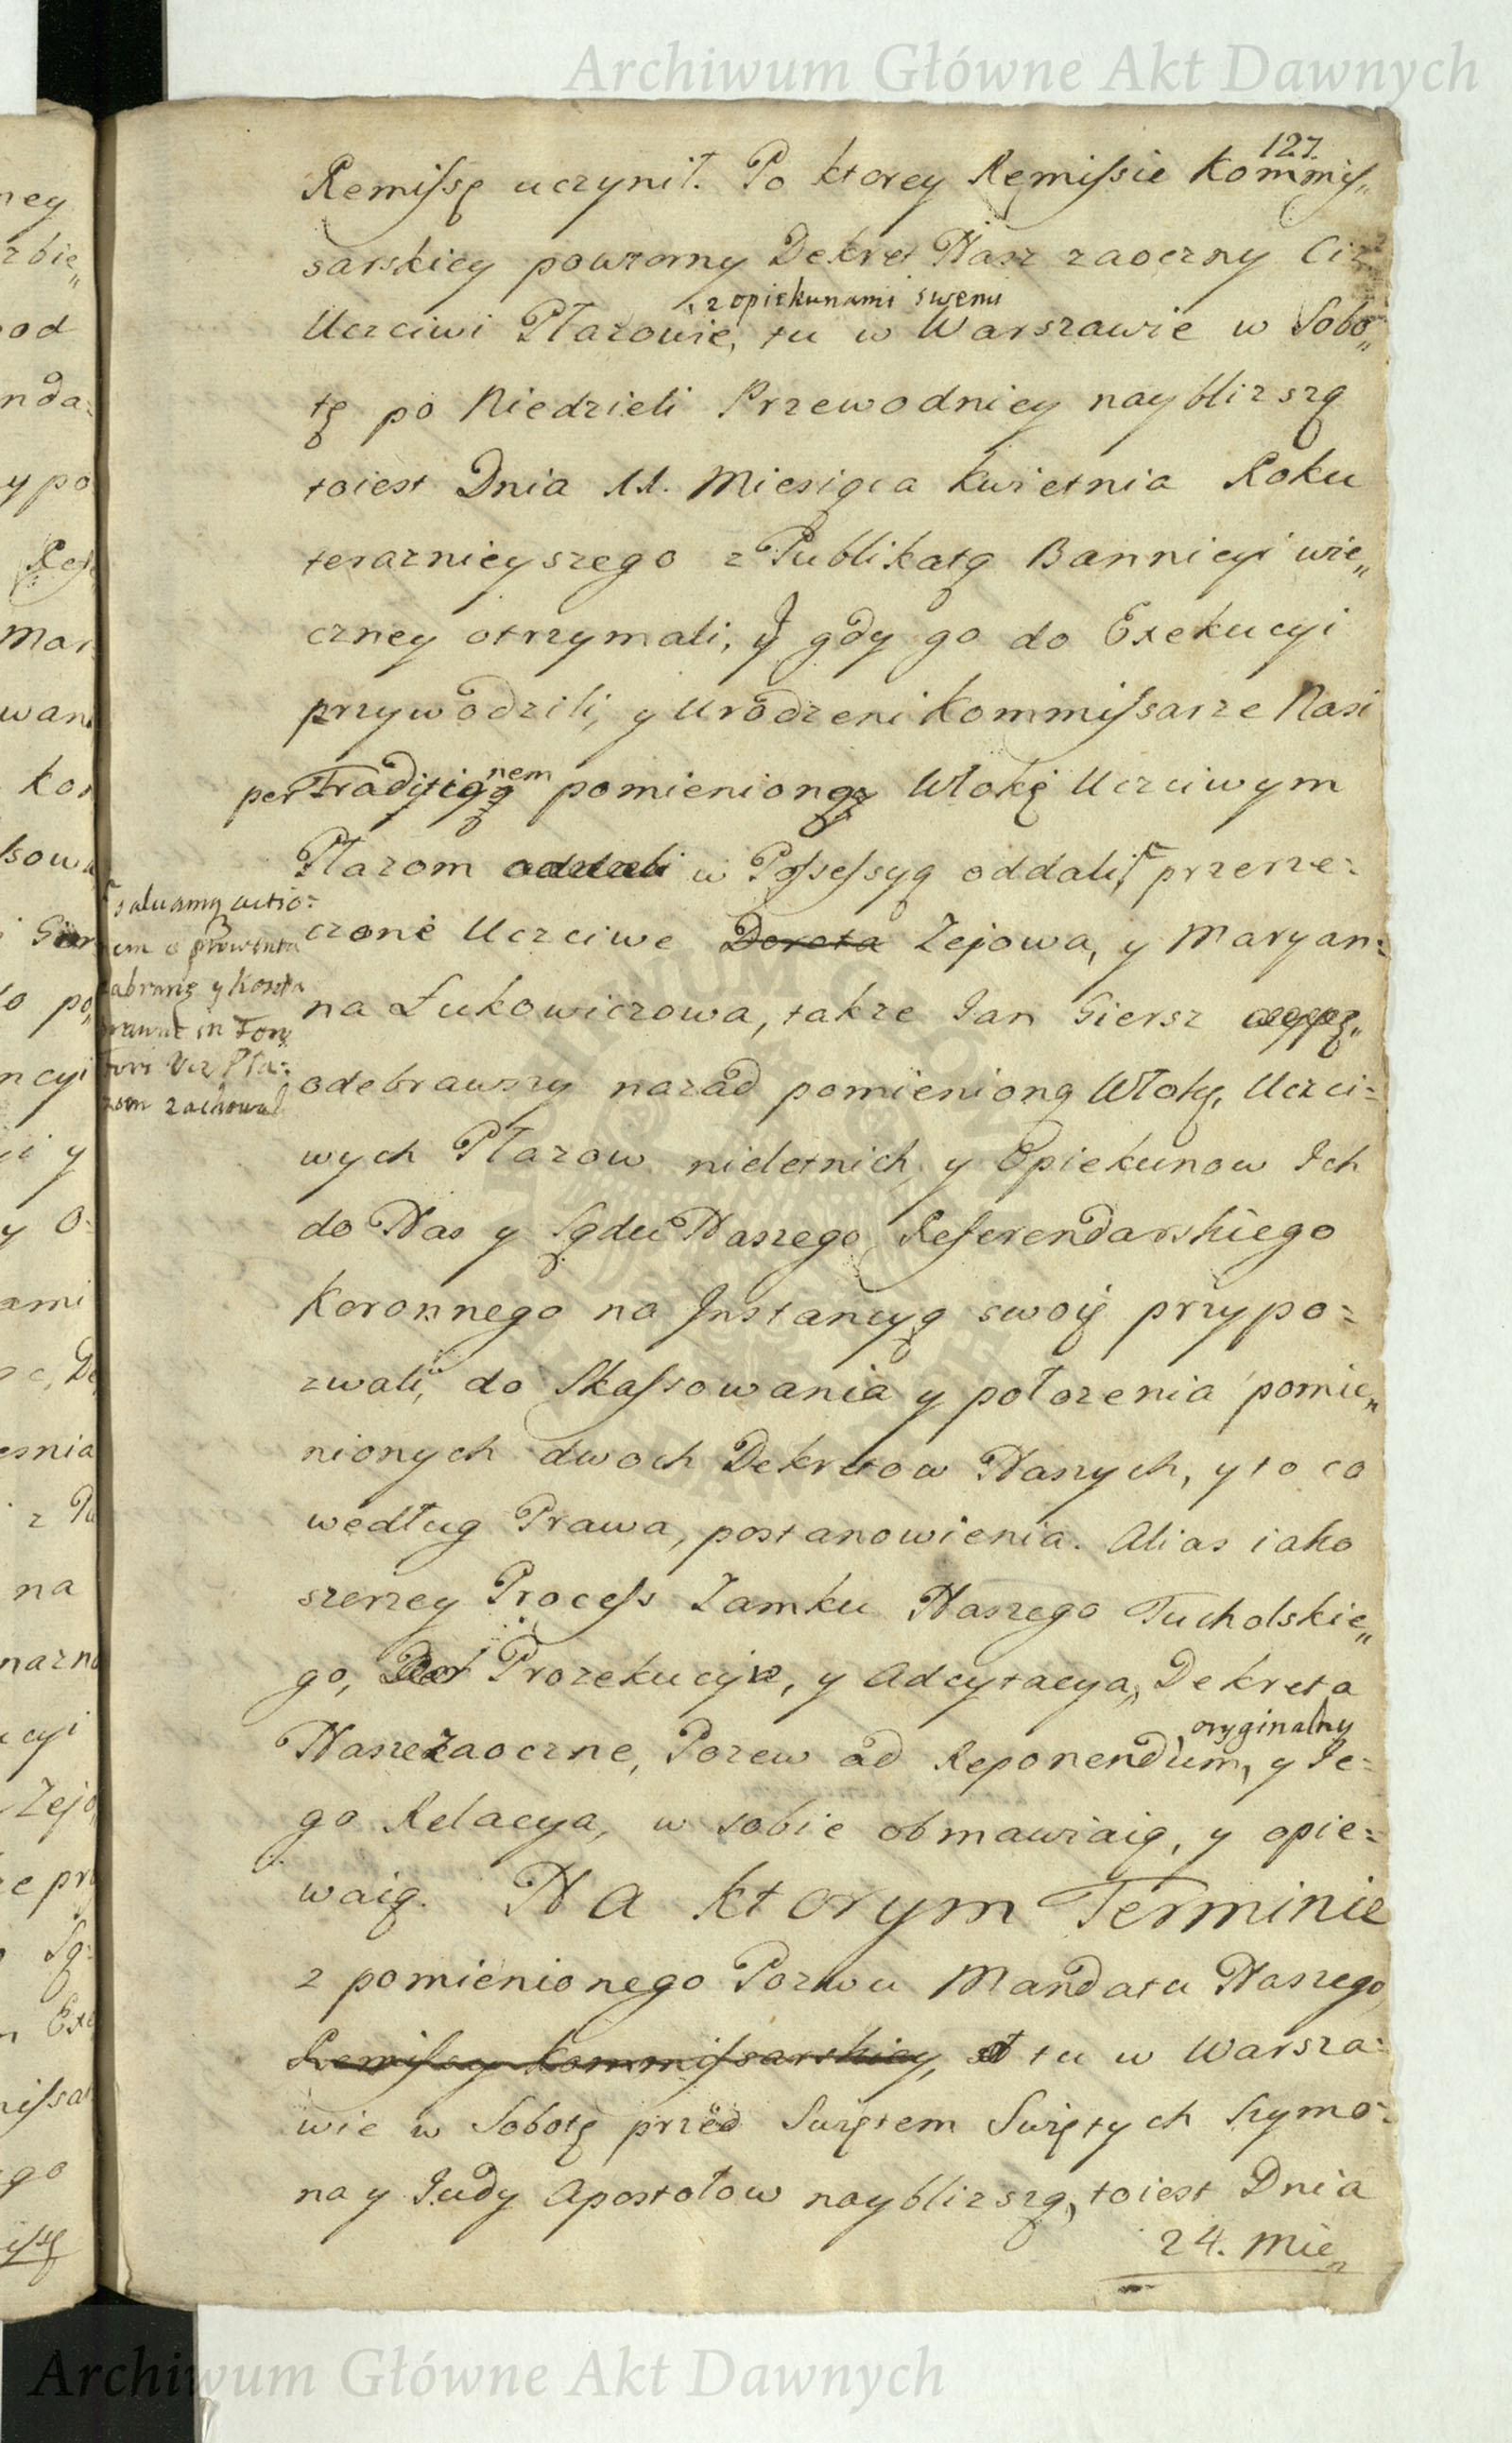 Archiwum Główne Akt Dawnych
127.
Remissę uczynił. Po ktorey Remissie Kommis„
sarskiey powtorny Dekret Nasz zaoczny Ciż
z opiekunami swemi
Uczciwi Płazowie, tu w Warszawie w Sobo„
tę po Niedzieli Przewodniey naybliższą
toiest Dnia 11. Miesiąca Kwietnia Roku
teraznieyszego z Publikatą Bannicyi wie„
czney otrzymali, y gdy go do Exekucyi
przywodzili, y Urodzeni Kommissarze Nasi
nem
per Traditio pomienioną Włokę Uczciwym
Płazom oddali w Possessyą oddali, przerze=
salvamq actio=
nem o prowenta
zabrane y koszta
prawne in Foro
Fori Ucz Pła=
zom zachowali
czone Uczciwe Dorota Zejowa, y Maryan=
na Łukowiczowa, takze Jan Giersz
odebrawszy nazad pomienioną Włokę, Uczci=
wych Płazow nieletnich, y Opiekunow Ich
do Nas y Sądu Naszego Referendarskiego
Koronnego na Instancyą swoię przypo=
zwali, do Skassowania y położenia pomie„
nionych dwoch Dekretow Naszych, y to co
według Prawa, postanowienia. Alias iako
szerzey Process Zamku Naszego Tucholskie„
go, Prozekucya, y Adcytacya, Dekreta
oryginalny
Nasze zaoczne, Pozew ad Reponendum, y Je=
go Relacya, w sobie obmawiaią, y opie=
waią. Na ktorym Terminie
z pomienionego Pozwu Mandatu Naszego
Remissy Kommissarskiey, tu w Warsza=
wie w Sobotę przed Swiętem Swiętych Szymo=
na y Judy Apostołow naybliższą, toiest Dnia
24. Mie„
Archiwum Główne Akt Dawnych